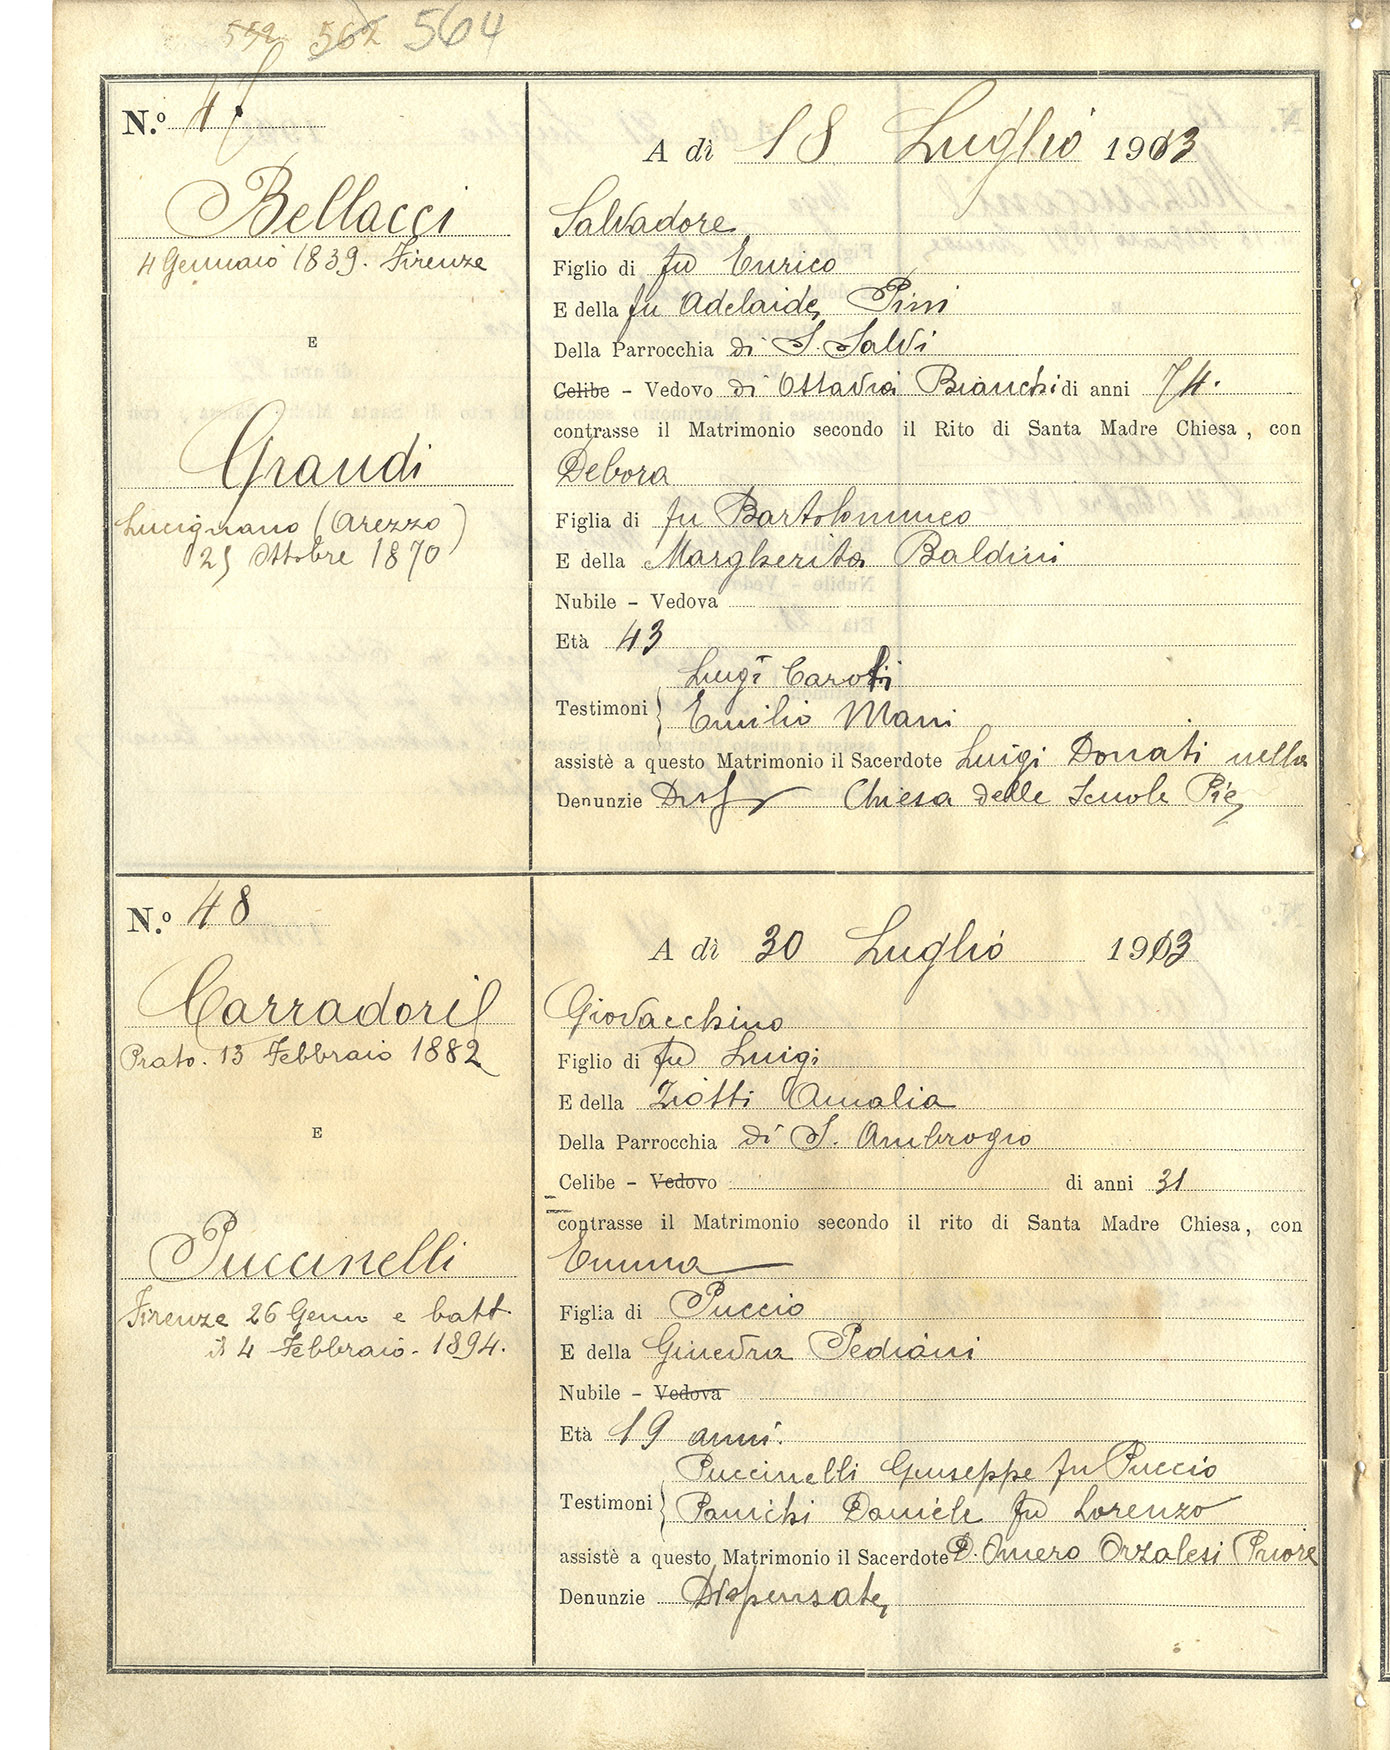 552 562 564
N.º 47
Bellacci
4 Gennaio 1839. Firenze
E
Grandi
Lucignano (Arezzo)
25 Ottobre 1870
A dì 18 Luglio 1913
Salvadore
Figlio di fu Enrico
E della fu Adelaide Pini
Della Parrocchia di S. Salvi
Celibe - Vedovo di Ottavia Bianchi di anni 74.
contrasse il Matrimonio secondo il Rito di Santa Madre Chiesa, con
Debora
Figlia di fu Bartolommeo
E della Margherita Baldini
Nubile - Vedova
Età 43
Testimoni Luigi Caroti
Emilio Mani
assistè a questo Matrimonio il Sacerdote Luigi Donati nella
Denunzie Chiesa delle Scuole Pie
N.º 48
Carradori
Prato. 13 Febbraio 1882
E
Puccinelli
Firenze 26 Genn e batt
il 4 Febbraio - 1894.
A dì 30 Luglio 1913
Giovacchino
Figlio di fu Luigi
E della Ziotti Amalia
Della Parrocchia di S. Ambrogio
Celibe - Vedovo di anni 31
contrasse il Matrimonio secondo il rito di Santa Madre Chiesa, con
Emma
Figlia di Puccio
E della Ginevra Pediani
Nubile - Vedova
Età 19 anni.
Puccinelli Giuseppe fu Puccio
Testimoni Panichi Daniele fu Lorenzo
assistè a questo Matrimonio il Sacerdote D. Omero Orzalesi Priore
Denunzie Dispensate